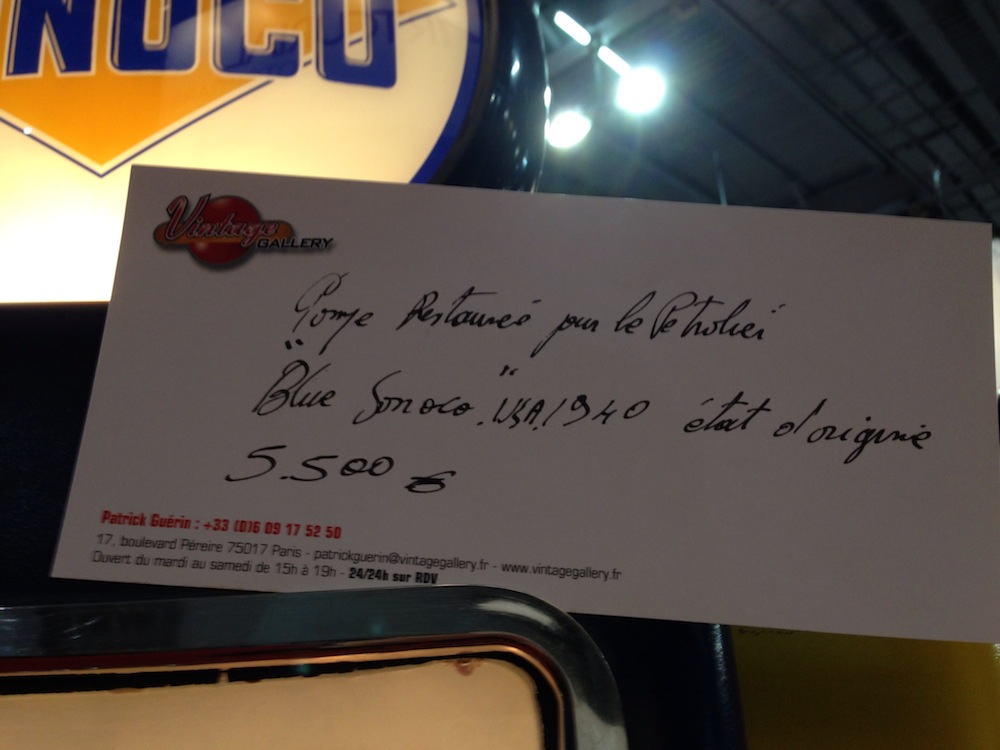 NOCO
Vintage
GALLERY
Pompe Restaurée pour le Pétrolier
"Blue Sonoco" USA 1940 état d'origine
5.500 €
Patrick Guérin : +33 (0)6 09 17 52 50
17, boulevard Péreire 75017 Paris - patrickguerin@vintagegallery.fr - www.vintagegallery.fr
Ouvert du mardi au samedi de 15h à 19h - 24/24h sur RDV